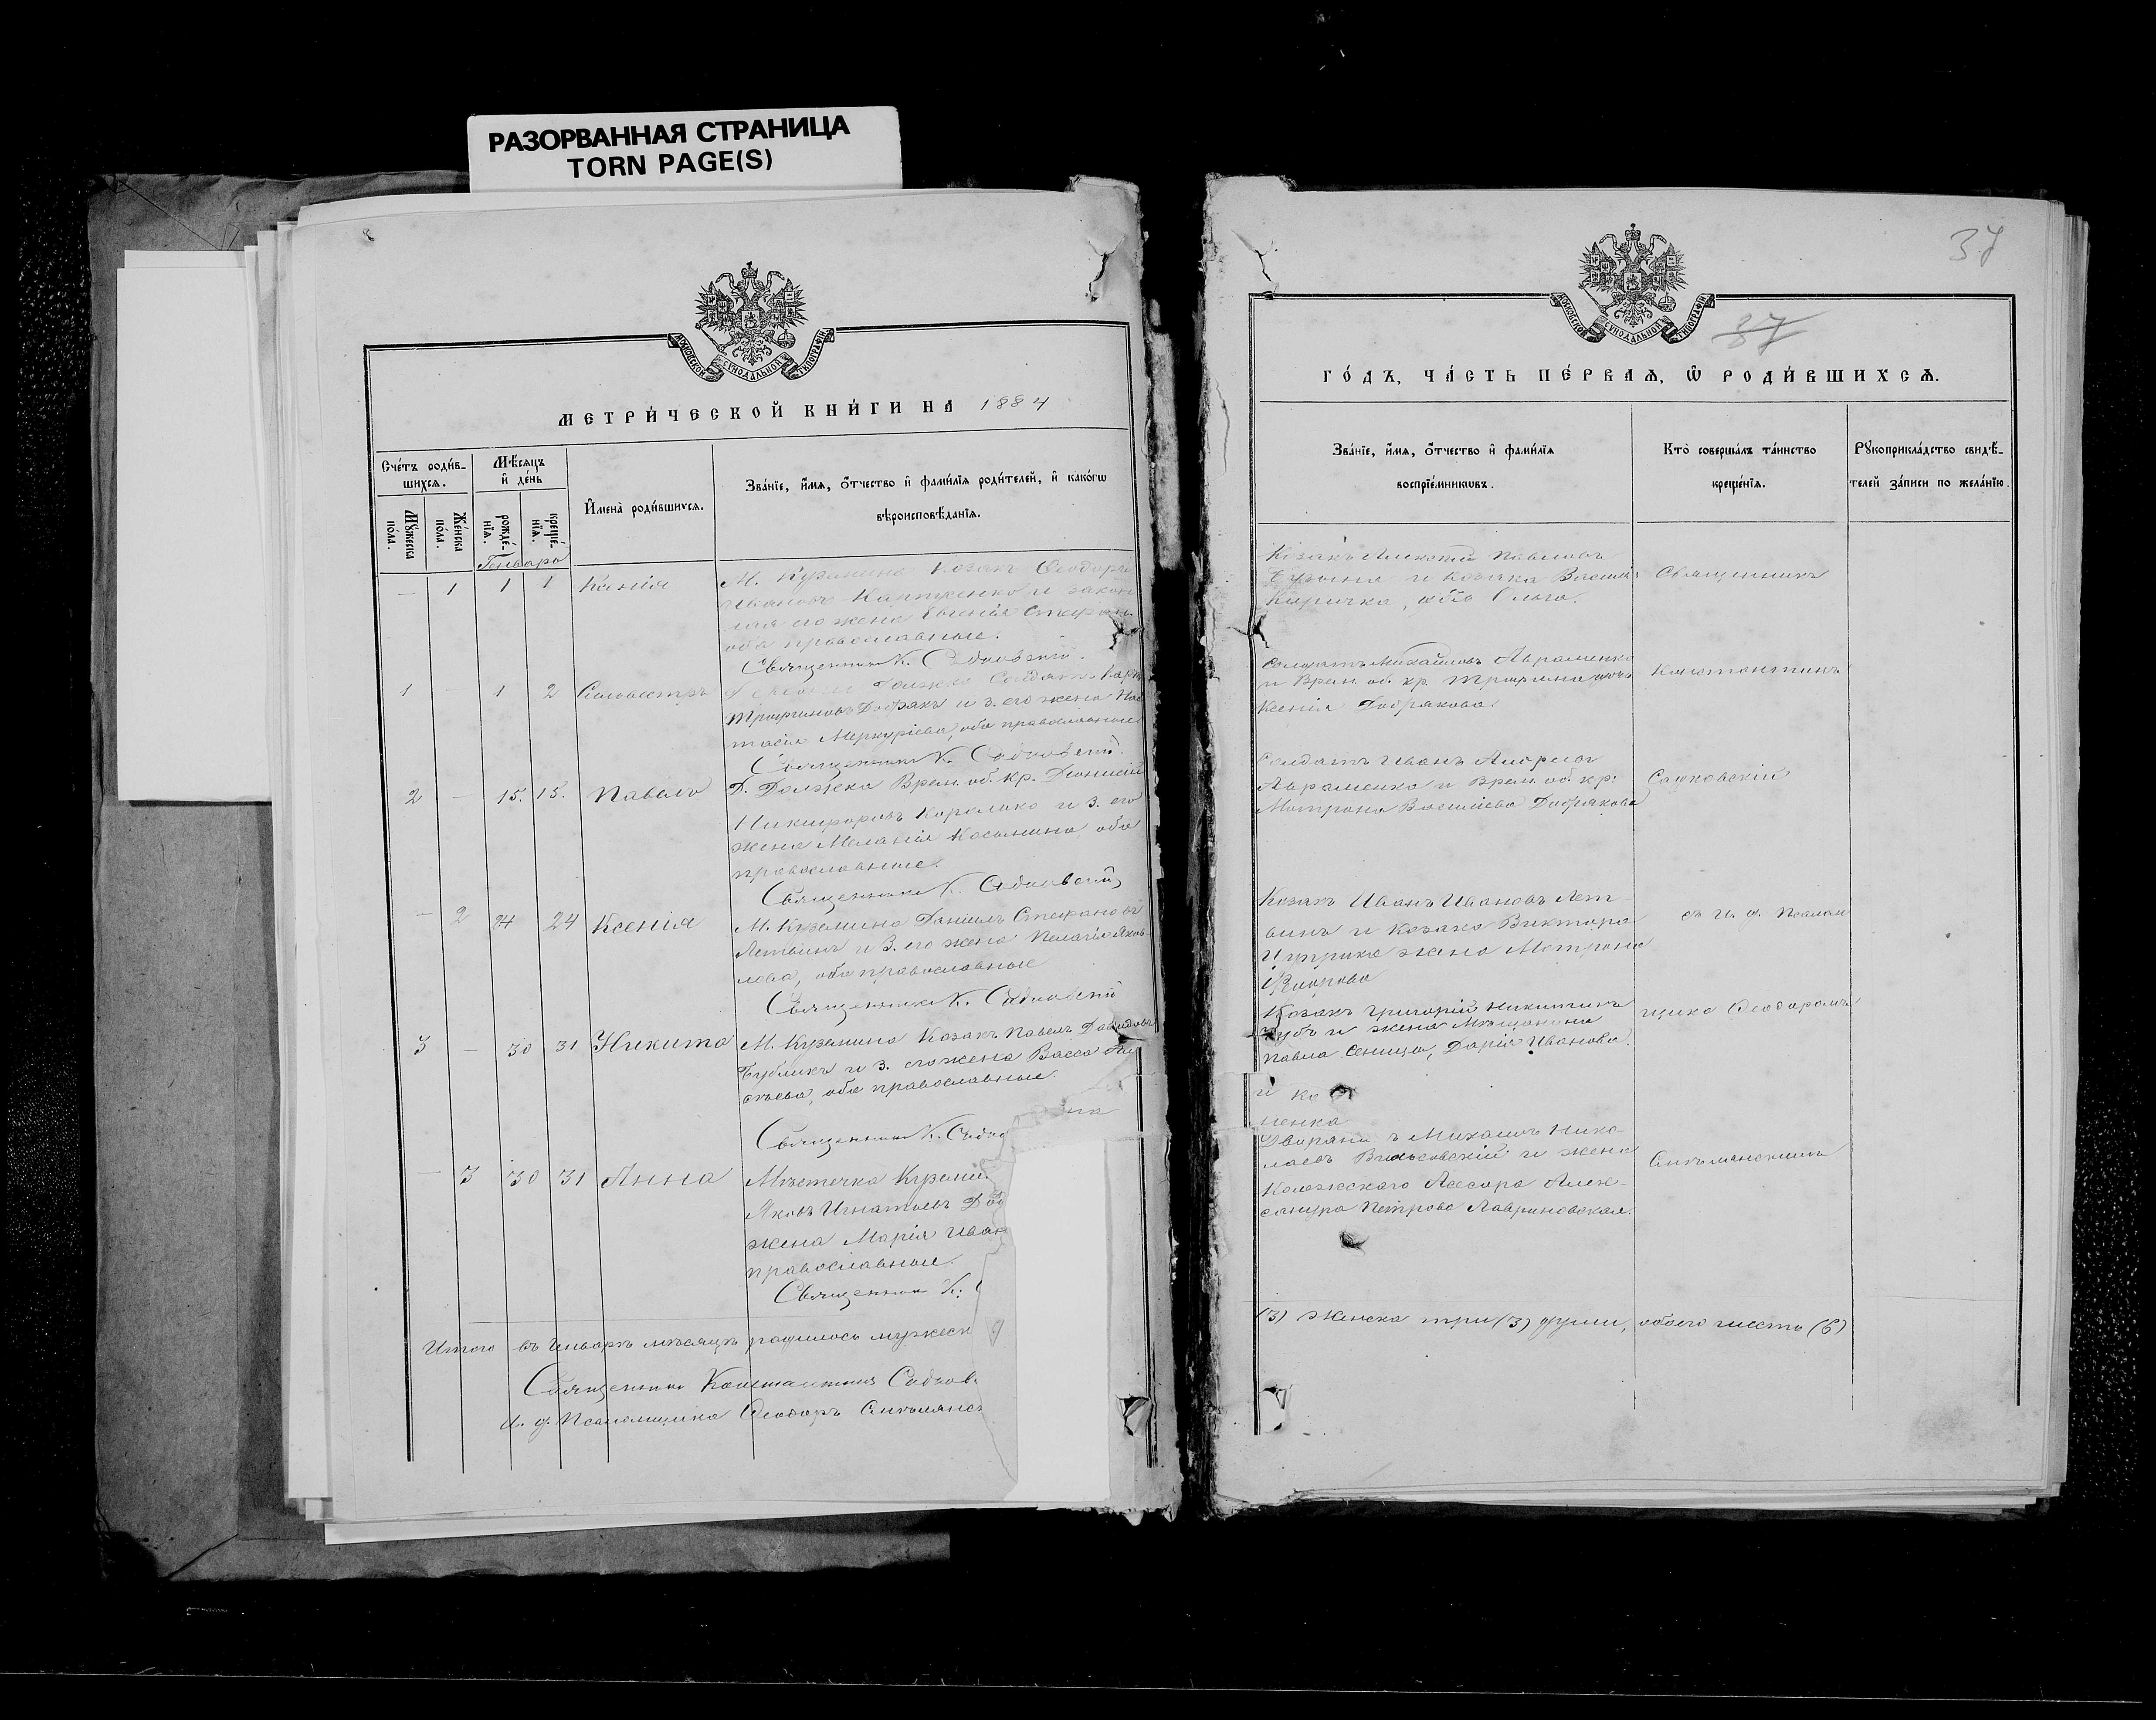 РАЗОРВАННАЯ СТРАНИЦА
TORN PAGE(S)
МОСКОВСКОЙ СѴНОДАЛЬНОЙ ТИПОГРАФІИ
МЕТРИ́ЧЕСКОЙ КНИ́ГИ НА 1884
Сче́тъ роди́в-
шихсѧ.
Мѣ́сѧцъ
и҆ де́нь
И҆мена̀ роди́вшихсѧ.
Зва́нїе, и҆́мѧ, ѻ҆́тчество и҆ фами́лїѧ роди́телей, и҆ како́гѡ
вѣроисповѣ́данїѧ.
Мꙋ́жеска
по́ла.
Же́нска
по́ла.
рожде́-
нїѧ.
креще́-
нїѧ.
Генварь
— 1 1 1 Ксенія
М. Куземина Козакъ Ѳеодоръ
Ивановъ Карпенко и закон
ная его жена Евгенія
оба православные.
Священникъ К. Садковскій.
1 — 1 2 Сильвестръ
Должка Солдатъ
Трофимовъ Добрякъ и з. его жена
тасія Меркуріева, оба православные
Священникъ К. Садковскій.
2 — 15. 15. Павелъ
Д. Должка Врем. об. кр. Діонисій
Никифоровъ Королько и з. его
жена Меланія Косьмина, оба
православные.
Священникъ К. Садковскій
— 2 24 24 Ксенія
М. Куземина Даніилъ Стефановъ
Летвинъ и з. его жена Пелагія Яков-
лева, оба православные
Священникъ К. Садковскій
3 — 30 31 Никита
М. Куземина Козакъ Павелъ Давидовъ
Бубликъ и з. его жена Васса
оба православные.
Священникъ К. Садко
— 3 30 31 Анна
Мѣстечка Куземи
Яковъ Игнатьевъ
жена Марія Иван
православные.
Священник К.
Итого въ Генварѣ мѣсяцѣ родилось мужеск
Священникъ Константинъ Садков
и. д. Псаломщика Ѳеодоръ
37
МОСКОВСКОЙ СѴНОДАЛЬНОЙ ТИПОГРАФІИ
37
ГО́ДЪ, ЧА́СТЬ ПЕ́РВАѦ, Ѽ РОДИ́ВШИХСѦ.
Зва́нїе, и҆́мѧ, ѻ҆́тчество и҆ фами́лїѧ
воспрїе́мникѡвъ.
Кто̀ соверша́лъ та́инство
креще́нїѧ.
Рꙋкоприкла́дство свидѣ́-
телей за́писи по жела́нїю.
Козакъ Алексѣй Павловъ
и козака
Киричка, Ольга.
Священникъ
Солдатъ Михаилъ Авраменко
и Врем. об. кр. Трофима дочь
Ксенія Добрякова.
Константинъ
Солдатъ Иванъ
Авраменко и Врем. об. кр.
Матрона Василіева Добрякова
Садковскій
Козакъ Иванъ Ивановъ Лет-
винъ и Козака Виктора
жена Матрона
съ и. д. Псалом
Козакъ Григорій Никитинъ
Зубъ и жена Мѣщанина
Павла Сеница, Дарія Иванова.
щика Ѳеодоромъ
и ко
ненка
Дворянинъ Михаилъ Нико-
лаевъ и жена
Колежскаго Асесора Алек-
сандра Петрова Лавриновская.
(3) Женска три (3) души, обоего шесть (6)